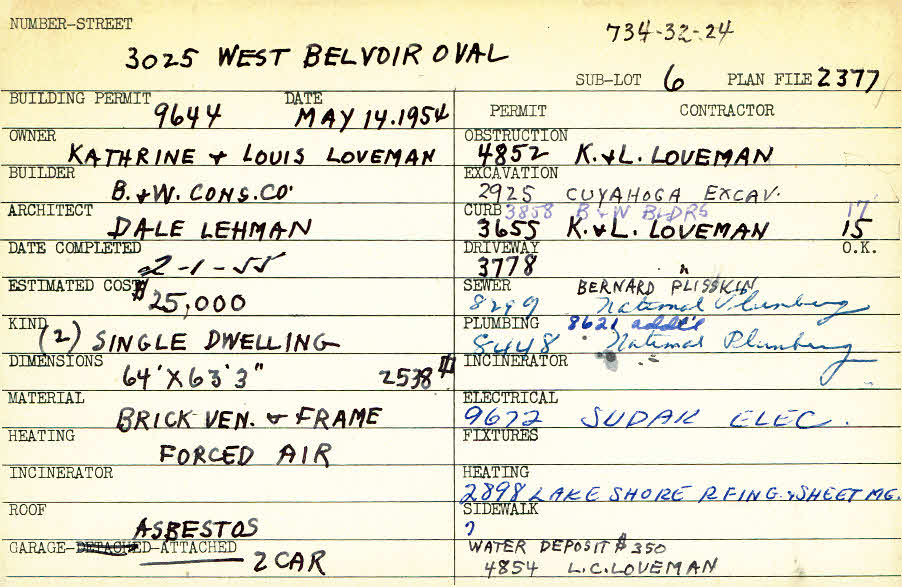 NUMBER-STREET
734-32-24
3025 WEST BELVOIR OVAL
SUB-LOT 6 PLAN FILE 2377
BUILDING PERMIT DATE
9644 MAY 14.1954
OWNER
KATHRINE + LOUIS LOVEMAN
BUILDER
B. + W. CONS. CO.
ARCHITECT
DALE LEHMAN
DATE COMPLETED
2-1-55
ESTIMATED COST
$25,000
KIND
(2) SINGLE DWELLING
DIMENSIONS
64' X 63'3" 2538 #
MATERIAL
BRICK VEN. + FRAME
HEATING
FORCED AIR
INCINERATOR
ROOF
ASBESTOS
GARAGE-DETACHED-ATTACHED
2 CAR
PERMIT CONTRACTOR
OBSTRUCTION
4852 K. + L. LOVEMAN
EXCAVATION
2925 CUYAHOGA EXCAV.
CURB 3858 B + W BLDRS 17
3655 K. + L. LOVEMAN 15
DRIVEWAY O.K.
3778 "
SEWER BERNARD PLISSKIN
8299 National Plumbing
PLUMBING 8621 addt'l
8448 National Plumbing
INCINERATOR
ELECTRICAL
9672 SUDAK ELEC.
FIXTURES
HEATING
2898 LAKE SHORE RFING. + SHEET MG.
SIDEWALK
?
WATER DEPOSIT $350
4854 L.C. LOVEMAN